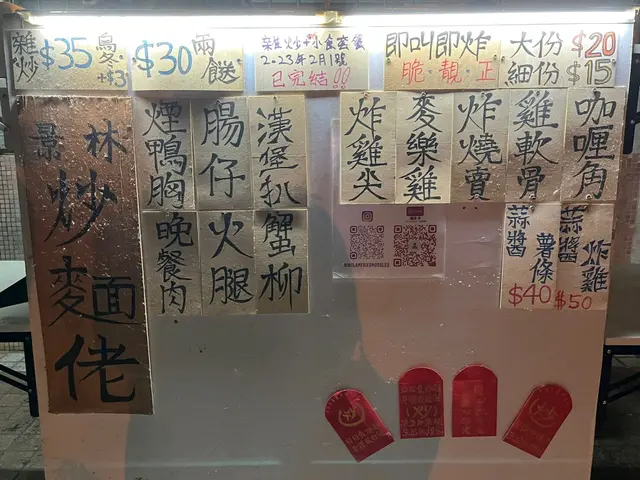 雜炒 $35
烏冬+$3
$30 兩餸
雜炒+小食套餐
2023年2月1號
已完結!!
即叫即炸
脆·靚·正
大份 $20
細份 $15
景林炒麵佬
煙鴨胸
腸仔
漢堡扒
炸雞尖
麥樂雞
炸燒賣
雞軟骨
咖喱角
晚餐肉
火腿
蟹柳
蒜醬薯條
$40
蒜醬炸雞
$50